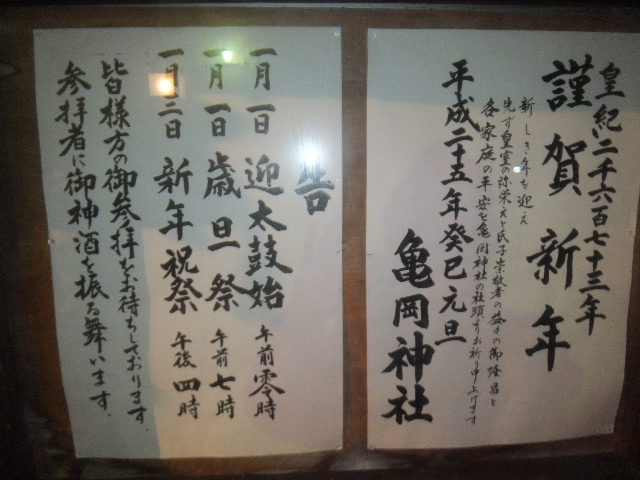 皇紀二千六百七十三年
謹賀新年
新しき年を迎え
先ず皇室の弥栄えと氏子崇敬者の益々の御隆昌と
各家庭の平安を亀岡神社の社頭よりお祈申上げます
平成二十五年癸巳元旦
亀岡神社
告
一月一日 迎太鼓始 午前零時
一月一日 歳旦祭 午前七時
一月二日 新年祝祭 午後四時
皆様方の御参拝をお待ちしております。
参拝者に御神酒を振る舞います。